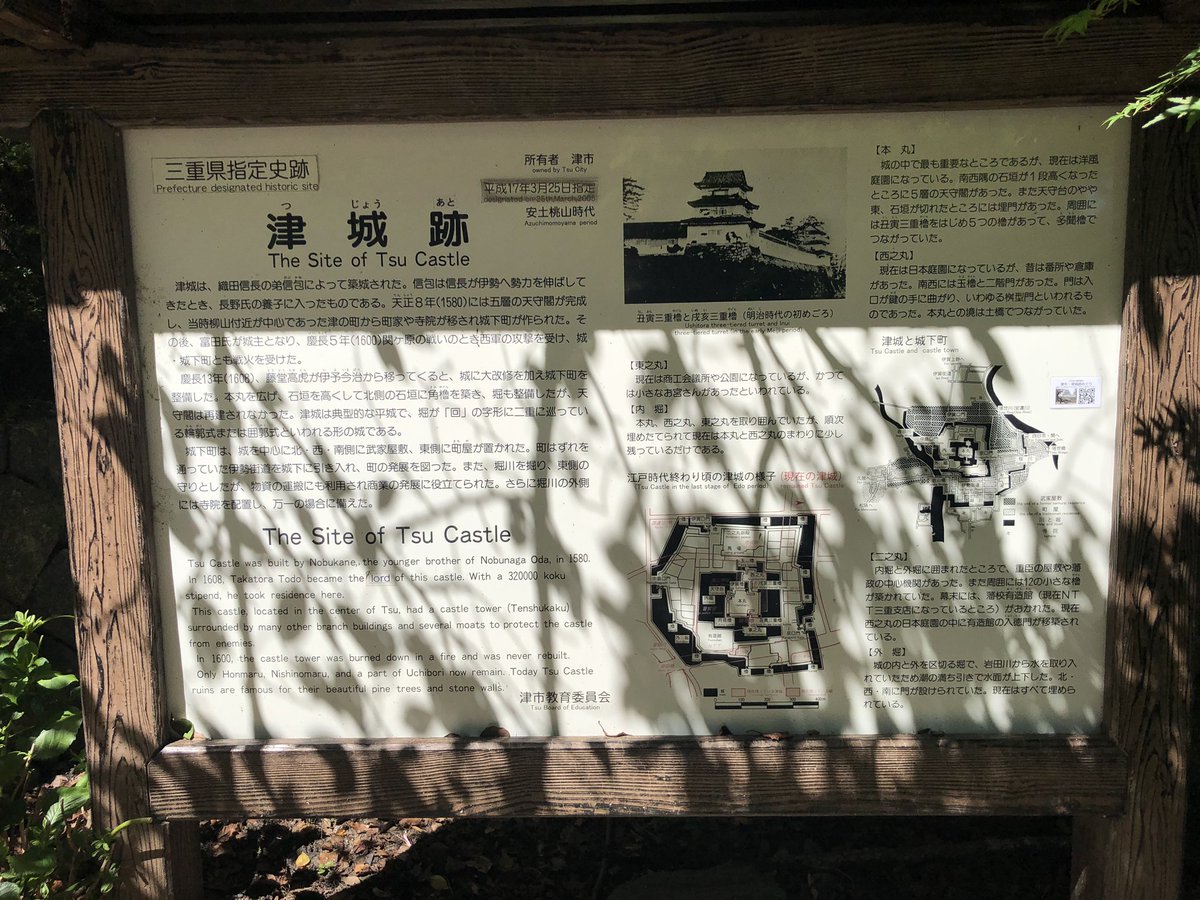 三重県指定史跡
Prefecture designated historic site
所有者 津市
owned by Tsu City
平成17年3月25日指定
designated on 25th March,2005
安土桃山時代
Azuchimomoyama period
つ じょう あと
津 城 跡
The Site of Tsu Castle
津城は、織田信長の弟信包によって築城された。信包は信長が伊勢へ勢力を伸ばして
きたとき、長野氏の養子に入ったものである。天正8年(1580)には五層の天守閣が完成
し、当時柳山付近が中心であった津の町から町家や寺院が移され城下町が作られた。そ
の後、富田氏が城主となり、慶長5年(1600)関ヶ原の戦いのとき西軍の攻撃を受け、城
・城下町とも戦火を受けた。
慶長13年(1608)、藤堂高虎が伊予今治から移ってくると、城に大改修を加え城下町を
整備した。本丸を広げ、石垣を高くして北側の石垣に角櫓を築き、堀も整備したが、天
守閣は再建されなかった。津城は典型的な平城で、堀が「回」の字形に二重に巡ってい
る輪郭式または囲郭式といわれる形の城である。
城下町は、城を中心に北・西・南側に武家屋敷、東側に町屋が置かれた。町はずれを
通っていた伊勢街道を城下に引き入れ、町の発展を図った。また、堀川を掘り、東側の
守りとしたが、物資の運搬にも利用され商業の発展に役立てられた。さらに堀川の外側
には寺院を配置し、万一の場合に備えた。
The Site of Tsu Castle
Tsu Castle was built by Nobukane, the younger brother of Nobunaga Oda, in 1580.
In 1608, Takatora Todo became the lord of this castle. With a 320000 koku
stipend, he took residence here.
This castle, located in the center of Tsu, had a castle tower (Tenshukaku)
surrounded by many other branch buildings and several moats to protect the castle
from enemies.
In 1600, the castle tower was burned down in a fire and was never rebuilt.
Only Honmaru, Nishinomaru, and a part of Uchibori now remain. Today Tsu Castle
ruins are famous for their beautiful pine trees and stone walls.
津市教育委員会
Tsu Board of Education
丑寅三重櫓と戌亥三重櫓(明治時代の初めごろ)
Ushitora three-tiered turret and Inui
three-tiered turret (in the early Meiji period)
【東之丸】
現在は商工会議所や公園になっているが、かつて
は小さなお宮さんがあったといわれている。
【内 堀】
本丸、西之丸、東之丸を取り囲んでいたが、順次
埋めたてられて現在は本丸と西之丸のまわりに少し
残っているだけである。
江戸時代終わり頃の津城の様子(現在の津城)
Tsu Castle in the last stage of Edo period
【本 丸】
城の中で最も重要なところであるが、現在は洋風
庭園になっている。南西隅の石垣が1段高くなった
ところに5層の天守閣があった。また天守台のやや
東、石垣が切れたところには埋門があった。周囲に
は丑寅三重櫓をはじめ5つの櫓があって、多聞櫓で
つながっていた。
【西之丸】
現在は日本庭園になっているが、昔は番所や倉庫
があった。南西には玉櫓と二階門があった。門は入
口が鍵の手に曲がり、いわゆる桝型門といわれるも
のであった。本丸との境は土橋でつながっていた。
津城と城下町
Tsu Castle and castle town
武家屋敷
町 屋
寺 院
【二之丸】
内堀と外堀に囲まれたところで、重臣の屋敷や藩
政の中心機関があった。また周囲には12の小さな櫓
が築かれていた。幕末には、藩校有造館(現在NT
T三重支店になっているところ)がおかれた。現在
西之丸の日本庭園の中に有造館の入徳門が移築され
ている。
【外 堀】
城の内と外を区切る堀で、岩田川から水を取り入
れていたため潮の満ち引きで水面が上下した。北・
西・南に門が設けられていた。現在はすべて埋めら
れている。